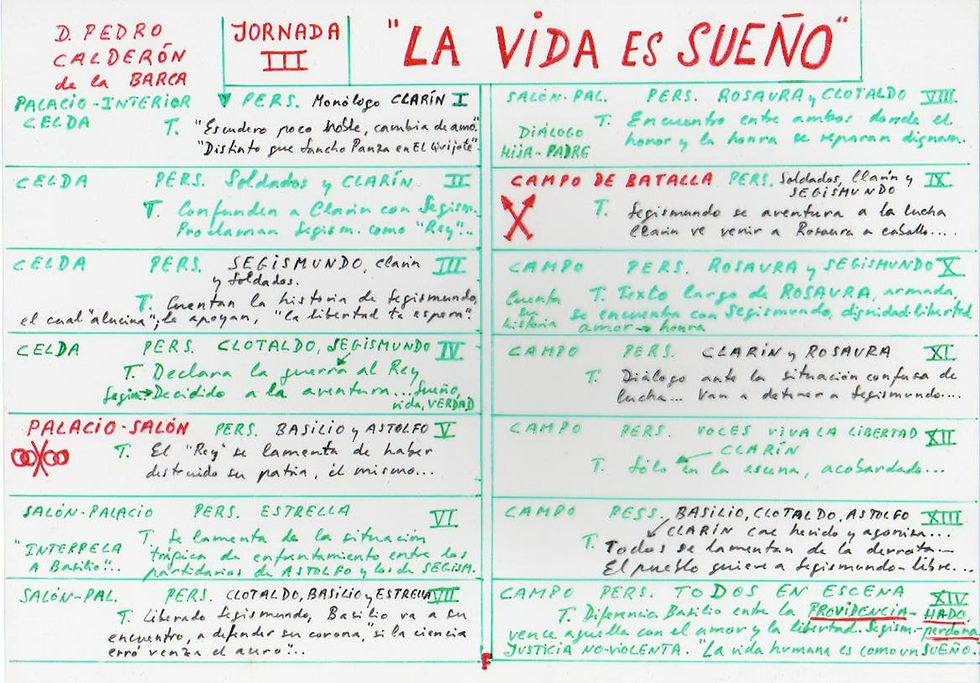 D. PEDRO
CALDERÓN
de la BARCA
JORNADA
III
"LA VIDA ES SUEÑO"
PALACIO-INTERIOR PERS. Monólogo CLARÍN I
CELDA
T. "Escudero poco noble, cambia de amo".
"Distinto que Sancho Panza en El Quijote".
CELDA PERS. Soldados y CLARÍN II
T. Confunden a Clarín con Segism.
Proclaman Segism. como "Rey"...
CELDA PERS. SEGISMUNDO, Clarín III
y Soldados.
T. Cuentan la historia de Segismundo,
el cual "alucina"; le apoyan, "la libertad te espera".
CELDA PERS. CLOTALDO, SEGISMUNDO IV
T. Declara la guerra al Rey
Segism→Decidido a la aventura... Sueño,
vida, VERDAD
PALACIO-SALÓN PERS. BASILIO y ASTOLFO V
T. El "Rey" se lamenta de haber
destruido su patria, él mismo...
SALÓN-PALACIO PERS. ESTRELLA VI
"INTERPELA
A Basilio"..
T. Se lamenta de la situación
trágica de enfrentamiento entre los
partidarios de ASTOLFO y los de SEGISM.
SALÓN-PAL. PERS. CLOTALDO, BASILIO y ESTRELLA VII
T. Liberado Segismundo, Basilio va a su
encuentro, a defender su corona, "si la ciencia
erró venza el acero"...
SALÓN-PAL. PERS. ROSAURA y CLOTALDO VIII
DIÁLOGO
HIJA-PADRE
T. Encuentro entre ambos donde el
honor y la honra se reparan dignam.
CAMPO DE BATALLA PERS. Soldados, Clarín y IX
SEGISMUNDO
T. Segismundo se aventura a la lucha
Clarín ve venir a Rosaura a caballo....
CAMPO PERS. ROSAURA y SEGISMUNDO X
Cuenta
su
historia
T. Texto largo de ROSAURA, armada,
se encuentra con Segismundo, dignidad-libertad
amor→honra
CAMPO PERS. CLARÍN y ROSAURA XI
T. Diálogo ante la situación confusa de
lucha... Van a detener a Segismundo...
CAMPO PERS. VOCES VIVA LA LIBERTAD XII
CLARÍN
T. Sólo en la escena, acobardado...
CAMPO PESS. BASILIO, CLOTALDO, ASTOLFO XIII
CLARÍN cae herido y agoniza...
T. Todos se lamentan de la derrota...
El pueblo quiere a Segismundo-libre...
CAMPO PERS. TODOS EN ESCENA XIV
T. Diferencia Basilio entre la PROVIDENCIA-HADO
vence aquella con el amor y la libertad. Segism-perdona
JUSTICIA NO-VIOLENTA. "La vida humana es como un SUEÑO..
F